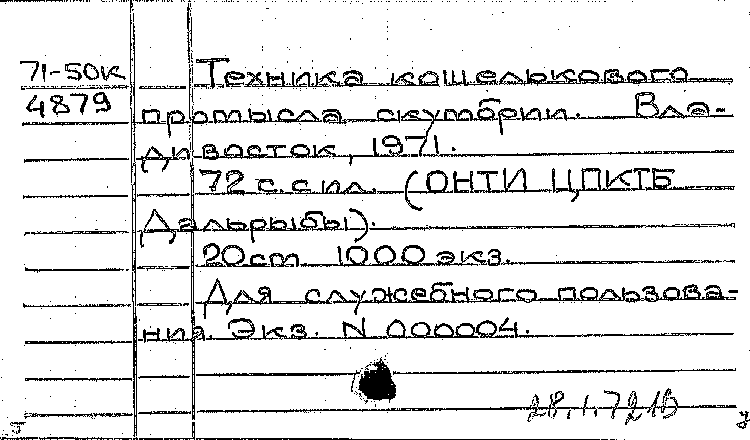 71-50к Техника кошелькового
4879 промысла скумбрии. Вла-
дивосток, 1971.
72 с. с ил. (ОНТИ ЦПКТБ
Дальрыбы).
20 см 1000 экз.
Для служебного пользова-
ния. Экз. N 000004.
28.1.72